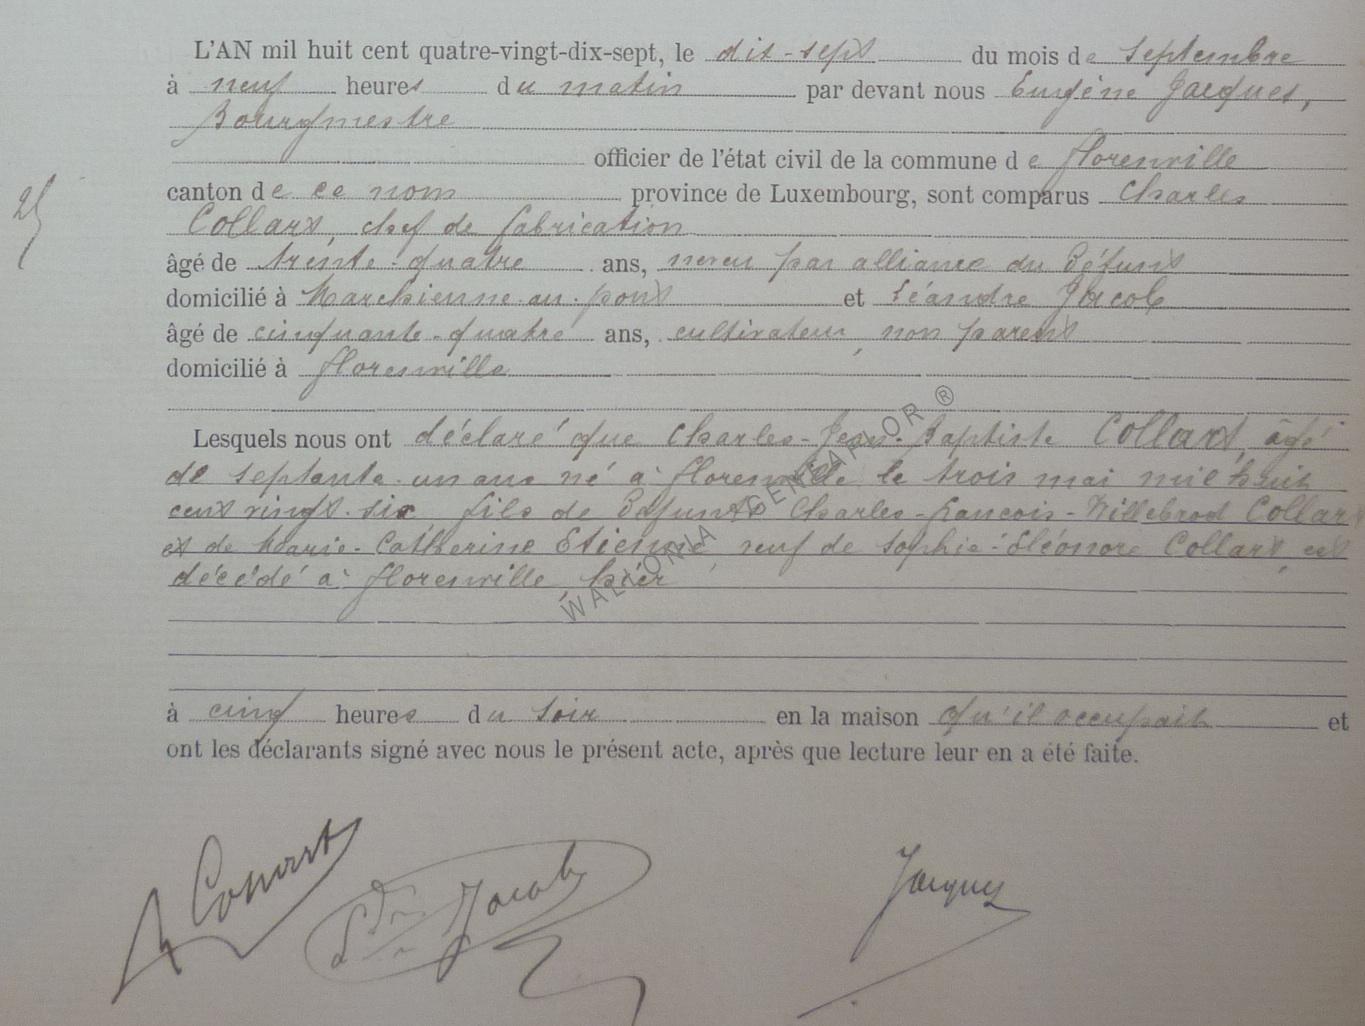 L'AN mil huit cent quatre-vingt-dix-sept, le dix-sept du mois de Septembre
à neuf heures du matin par devant nous Eugène Jacques,
Bourgmestre
officier de l'état civil de la commune de florenville
canton de ce nom province de Luxembourg, sont comparus Charles
Collart, chef de fabrication
âgé de trente-quatre ans, neveu par alliance du Défunt
domicilié à Marchienne-au-pont et Léandre Jacob
âgé de cinquante-quatre ans, cultivateur, non parent
domicilié à florenville
Lesquels nous ont déclaré que Charles-Jean-Baptiste Collart, âgé
de septante-un ans né à florenville le trois mai mil huit
cent vingt-six, fils de Défunts Charles-François-Willebrod Collart
et de Marie-Catherine Etienne, veuf de Sophie-Eléonore Collart, est
décédé à florenville, hier
à cinq heures du soir en la maison qu'il occupait et
ont les déclarants signé avec nous le présent acte, après que lecture leur en a été faite.
Jacob
Jacques
WALLONIA GENEAFLOR ®